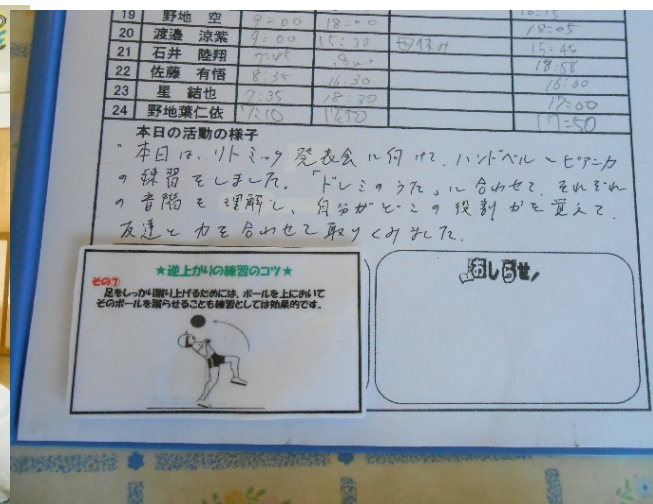 19 野地 空 9:00 18:00
20 渡邉 涼紫 9:00 15:30 母休み 18:05
21 石井 陸翔 15:45
22 佐藤 有悟 8:35 16:30 18:58
23 星 結也 7:35 18:30 16:00
24 野地葉仁依 7:10 17:50 17:00
17:50
本日の活動の様子
本日は、リトミック発表会に向けて、ハンドベルとピアニカ
の練習をしました。「ドレミのうた」に合わせて、それぞれ
の音階を理解し、自分がどこの役割かを覚えて、
友達と力を合わせて取りくみました。
★逆上がりの練習のコツ★
その⑦
足をしっかり蹴り上げるためには、ボールを上において
そのボールを蹴らせることも練習としては効果的です。
おしらせ!